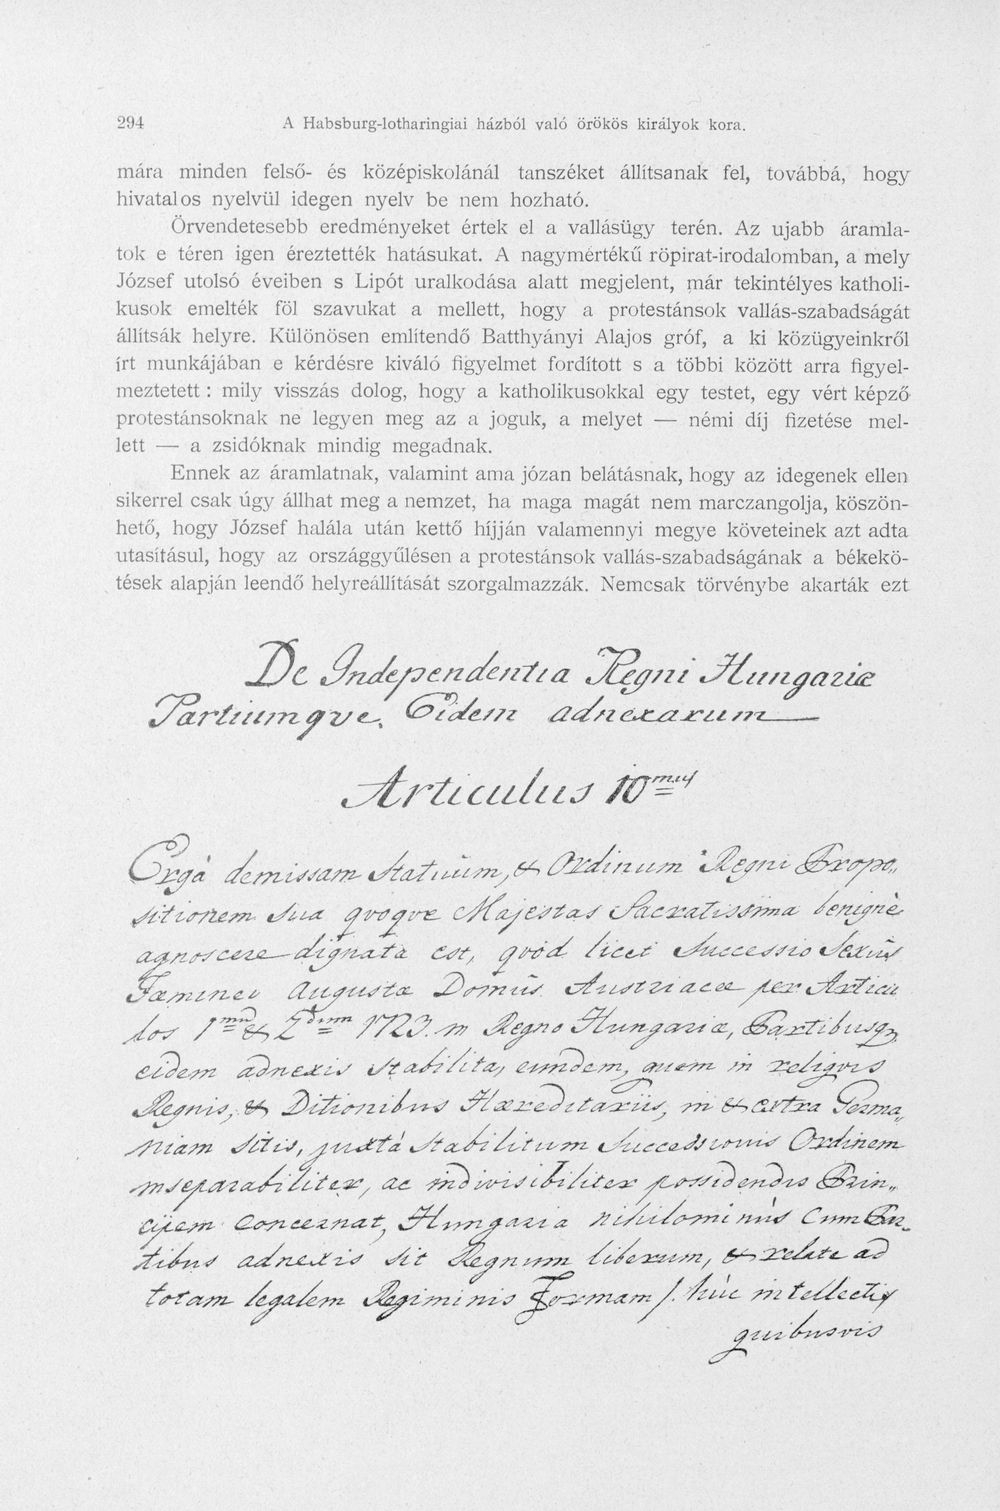 294 A Habsburg-lotharingiai házból való örökös királyok kora.
mára minden felső- és középiskolánál tanszéket állítsanak fel, továbbá, hogy
hivatalos nyelvül idegen nyelv be nem hozható.
Örvendetesebb eredményeket értek el a vallásügy terén. Az ujabb áramla-
tok e téren igen éreztették hatásukat. A nagymértékű röpirat-irodalomban, a mely
József utolsó éveiben s Lipót uralkodása alatt megjelent, már tekintélyes katholi-
kusok emelték föl szavukat a mellett, hogy a protestánsok vallás-szabadságát
állítsák helyre. Különösen említendő Batthyányi Alajos gróf, a ki közügyeinkről
írt munkájában e kérdésre kiváló figyelmet fordított s a többi között arra figyel-
meztetett: mily visszás dolog, hogy a katholikusokkal egy testet, egy vért képző
protestánsoknak ne legyen meg az a joguk, a melyet — némi díj fizetése mel-
lett — a zsidóknak mindig megadnak.
Ennek az áramlatnak, valamint ama józan belátásnak, hogy az idegenek ellen
sikerrel csak úgy állhat meg a nemzet, ha maga magát nem marczangolja, köszön-
hető, hogy József halála után kettő híjján valamennyi megye követeinek azt adta
utasításul, hogy az országgyűlésen a protestánsok vallás-szabadságának a békekö-
tések alapján leendő helyreállítását szorgalmazzák. Nemcsak törvénybe akarták ezt
De Independentia Regni Hungariæ
Partiumqve Eidem adnexarum
Articulus 10mus
Ergà demissam Statuum, & Ordinum Regni Propo„
sitionem Sua qvoqve Majestas Sacratissima benignè
agnoscere dignata est, qvòd licet Successio Sexûs
Fæminei Augustæ Domûs Austriacæ per Articu
los 1mum & 2dum 1723. in Regno Hungariæ, Partibusq3
eidem adnexis stabilita, eumdem, quem in reliqvis
Regnis, & Ditionibus Hæreditariis, in & extra Germa„
niam sitis, juxtà stabilitum Successionis Ordinem
inseparabiliter, ac indivisibiliter possidendis Prin„
cipem concernat, Hungaria nihilominùs cum Par„
tibus adnexis sit Regnum liberum, & relate ad
totam legalem Regiminis Formam /: huc intellectis
quibusvis